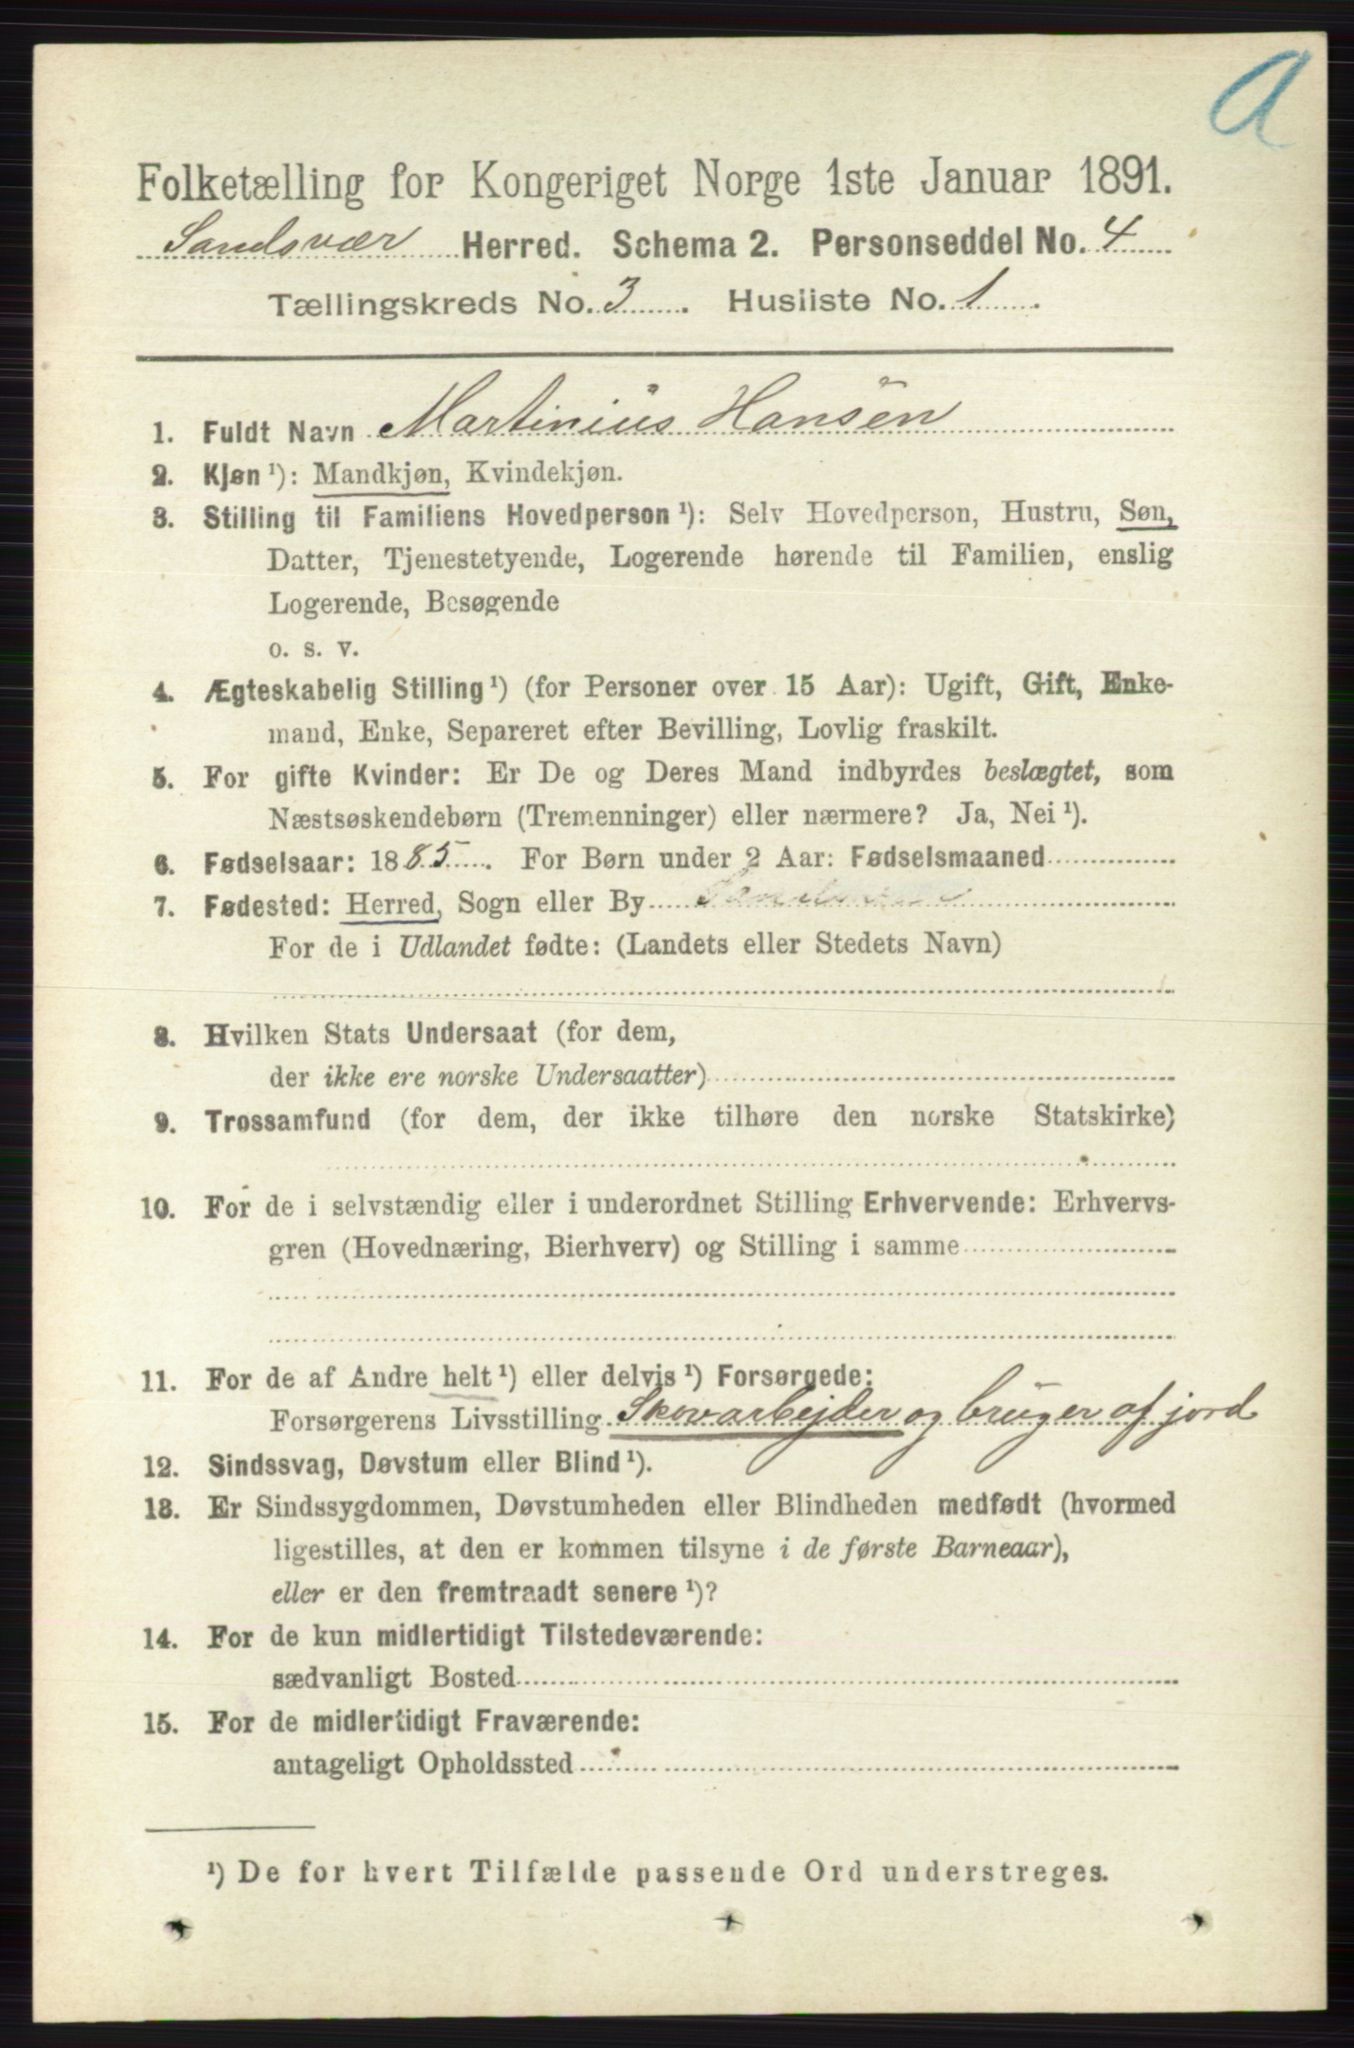 a
Folketælling for Kongeriget Norge 1ste Januar 1891.
Sandsvær Herred. Schema 2. Personseddel No. 4
Tællingskreds No. 3. Husliste No. 1.
1. Fuldt Navn Martinius Hansen
2. Kjøn ¹): Mandkjøn, Kvindekjøn.
3. Stilling til Familiens Hovedperson ¹): Selv Hovedperson, Hustru, Søn,
Datter, Tjenestetyende, Logerende hørende til Familien, enslig
Logerende, Besøgende
o. s. v.
4. Ægteskabelig Stilling ¹) (for Personer over 15 Aar): Ugift, Gift, Enke-
mand, Enke, Separeret efter Bevilling, Lovlig fraskilt.
5. For gifte Kvinder: Er De og Deres Mand indbyrdes beslægtet, som
Næstsøskendebørn (Tremenninger) eller nærmere? Ja, Nei ¹).
6. Fødselsaar: 1885. For Børn under 2 Aar: Fødselsmaaned
7. Fødested: Herred, Sogn eller By
For de i Udlandet fødte: (Landets eller Stedets Navn)
8. Hvilken Stats Undersaat (for dem,
der ikke ere norske Undersaatter)
9. Trossamfund (for dem, der ikke tilhøre den norske Statskirke)
10. For de i selvstændig eller i underordnet Stilling Erhvervende: Erhvervs-
gren (Hovednæring, Bierhverv) og Stilling i samme
11. For de af Andre helt ¹) eller delvis ¹) Forsørgede:
Forsørgerens Livsstilling Skovarbejder og bruger af jord
12. Sindssvag, Døvstum eller Blind ¹).
13. Er Sindssygdommen, Døvstumheden eller Blindheden medfødt (hvormed
ligestilles, at den er kommen tilsyne i de første Barneaar),
eller er den fremtraadt senere ¹)?
14. For de kun midlertidigt Tilstedeværende:
sædvanligt Bosted
15. For de midlertidigt Fraværende:
antageligt Opholdssted
¹) De for hvert Tilfælde passende Ord understreges.